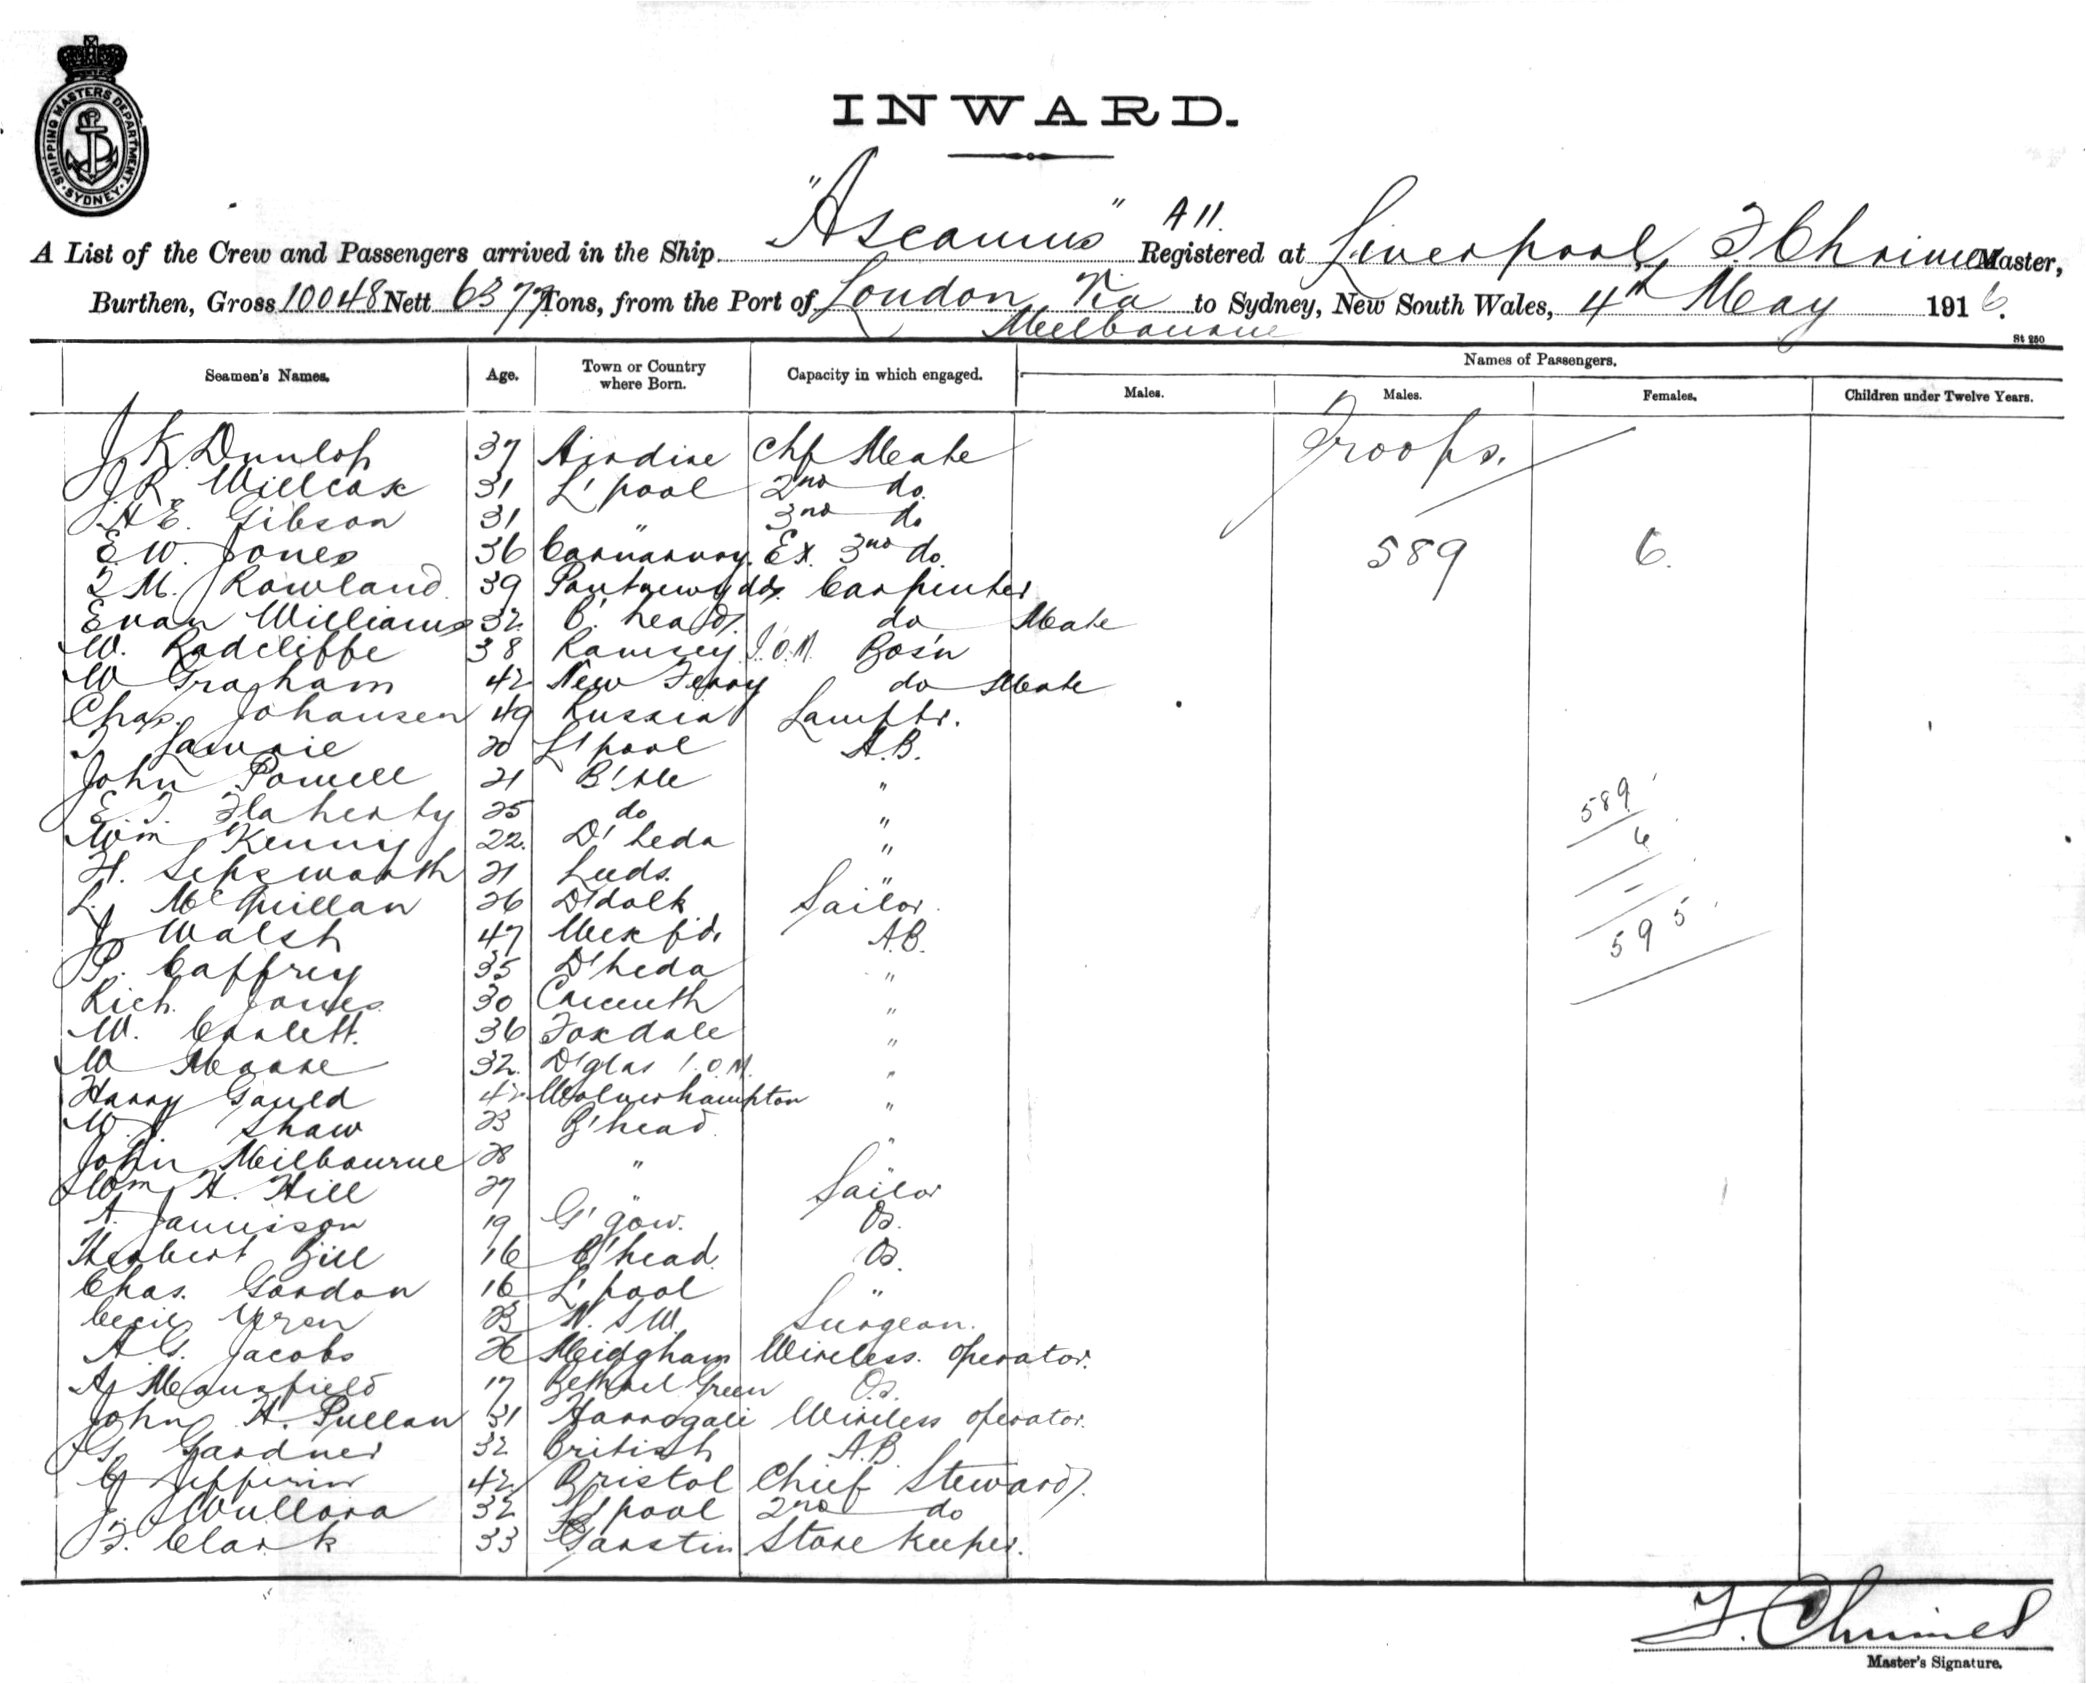 SHIPPING MASTERS DEPARTMENT. SYDNEY.
INWARD.
A List of the Crew and Passengers arrived in the Ship "Ascanius" A 11. Registered at Liverpool, F. Chrimes Master,
Burthen, Gross 10048 Nett 6377 Tons, from the Port of London Via to Sydney, New South Wales, 4th May 1916.
Melbourne
St 250
Seamen's Names. Age. Town or Country where Born. Capacity in which engaged. Names of Passengers.
Males. Males. Females. Children under Twelve Years.
J. K. Dunlop 37 Airdire Chf Mate Troops.
J. R. Willcox 31 L'pool 2nd do.
H E. Gibson 31 " 3rd do
E. W. Jones 36 Carnarvon. Ex. 3rd do. 589 6.
M. Rowland 39 Carpenter
Evan Williams 32 B'head. do Mate
W. Radcliffe 38 Ramsey I.O.M. Bos'n
W Graham 42 New Ferry do Mate
Chas. Johansen 49 Russia Lamptr.
Lawrie 20 L'pool A.B.
John Powell 21 "
E. T. Flaherty 25 do "
Wm Kenny 22. D'heda "
H. 21 Leeds. "
L. McQuillan 26 D'dalk Sailor.
J Walsh 47 Wexf'd. A.B.
P. Caffrey 35 D'heda "
Rich. Jones 30 "
W. Corlett. 36 Foxdale "
W Moore 32. D'glas I.O.M. "
Harry Gould 42 Wolverhampton "
W. Shaw 23 B'head. "
John Milbourne 28 "
Wm H. Hill 27 " Sailor
A. Jamisson 19 G'gow. Os.
Herbert Bill 16 B'head. Os.
Chas. Gordon 16 L'pool "
Cecil 23 N.S.W. Surgeon.
A G. Jacobs 26 Midgham Wireless. operator.
A. Mansfield 17 Bethnel Green Os.
John H. Pullan 31 Harrogate Wireless operator.
G. Gardner 32 British A.B.
42 Bristol Chief Steward.
J. 32 L'pool 2nd do
F. Clark 33 Garstin Store keeper.
589
6
-
595
F. Chrimes
Master's Signature.